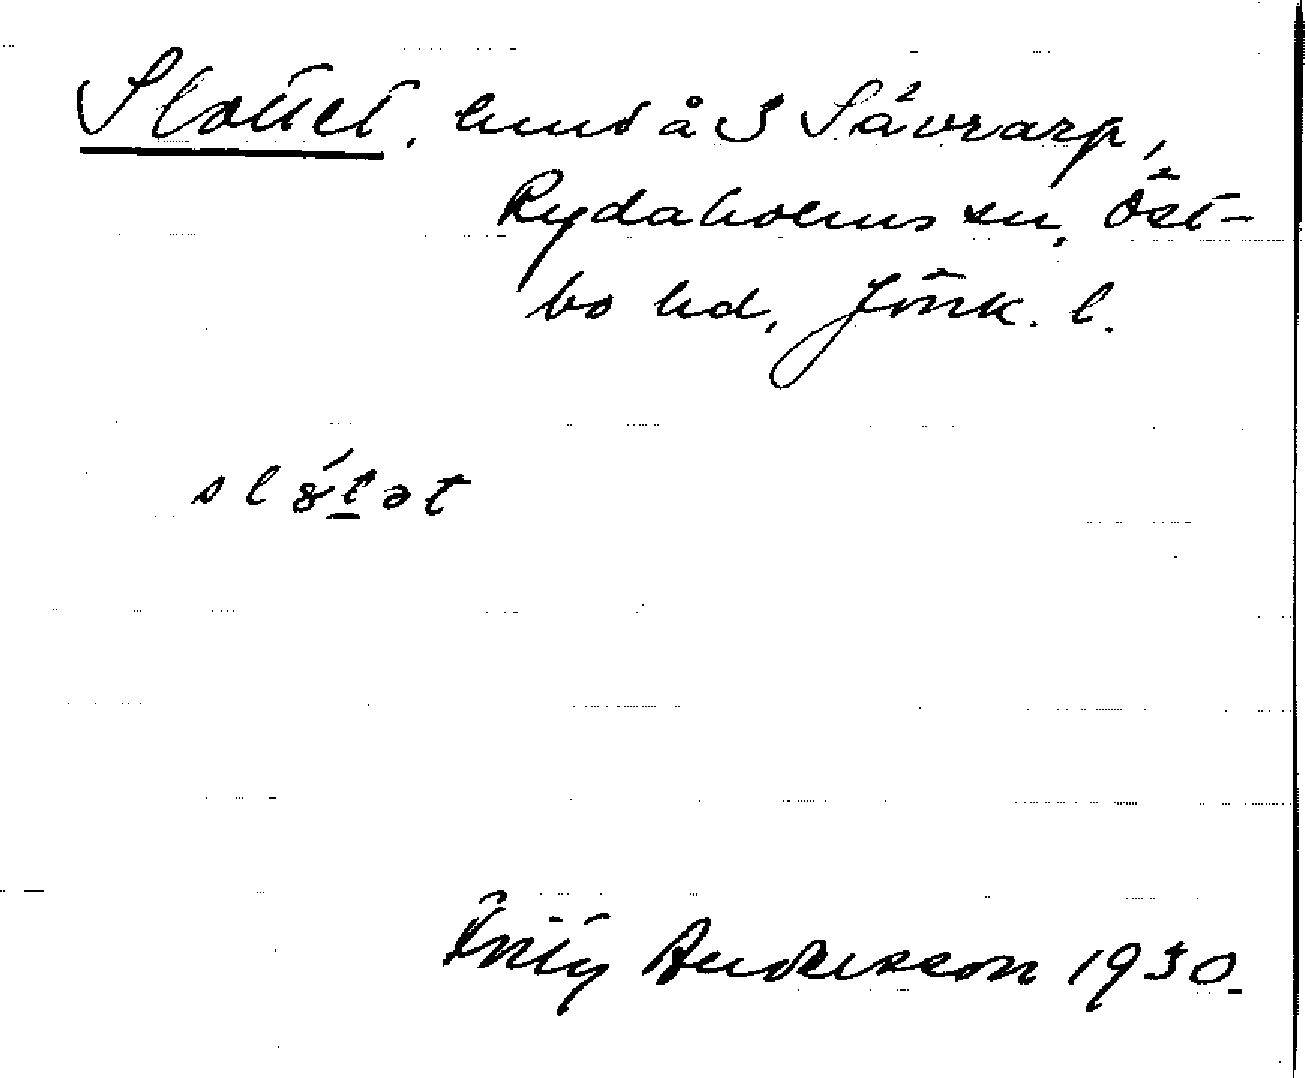 Slottet, hmd å S Sävrarp,
Rydaholms sn, Öst-
bo hd, Jönk. l.
slȣ́t̲ət
Fritz Andersson 1930.